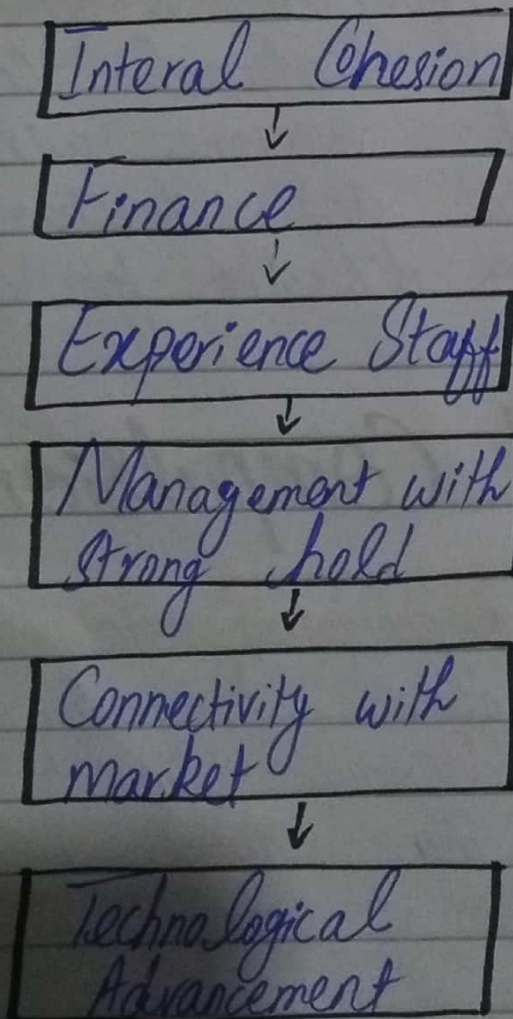 Interal Cohesion
Finance
Experience Staff
Management with
strong hold
Connectivity with
market
Technological
Advancement